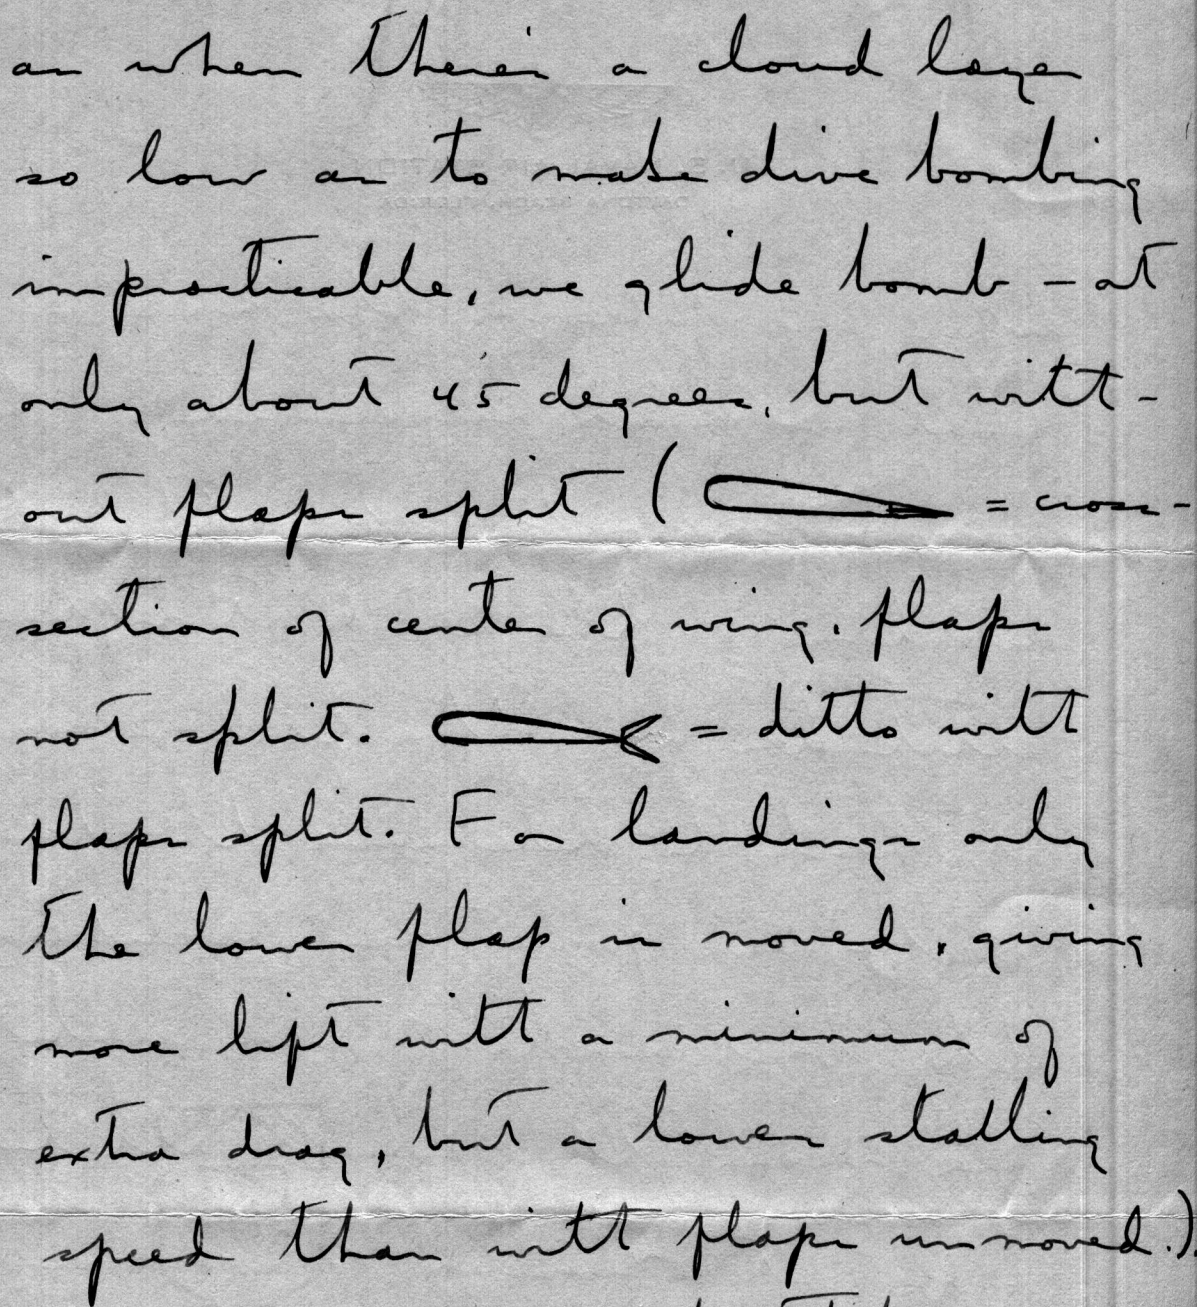 as when there's a cloud layer
so low as to make dive bombing
impracticable, we glide bomb – at
only about 45 degrees, but with-
out flaps split ( = cross-
section of center of wing, flaps
not split. = ditto with
flaps split. For landings only
the lower flap is moved, giving
more lift with a minimum of
extra drag, but a lower stalling
speed than with flaps unmoved.)